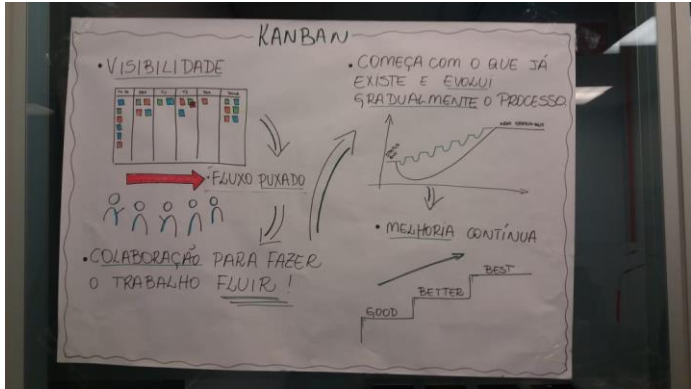 KANBAN
• VISIBILIDADE
• FLUXO PUXADO
• COLABORAÇÃO PARA FAZER
O TRABALHO FLUIR!
• COMEÇA COM O QUE JÁ
EXISTE E EVOLUI
GRADUALMENTE O PROCESSO
• MELHORIA CONTÍNUA
GOOD
BETTER
BEST